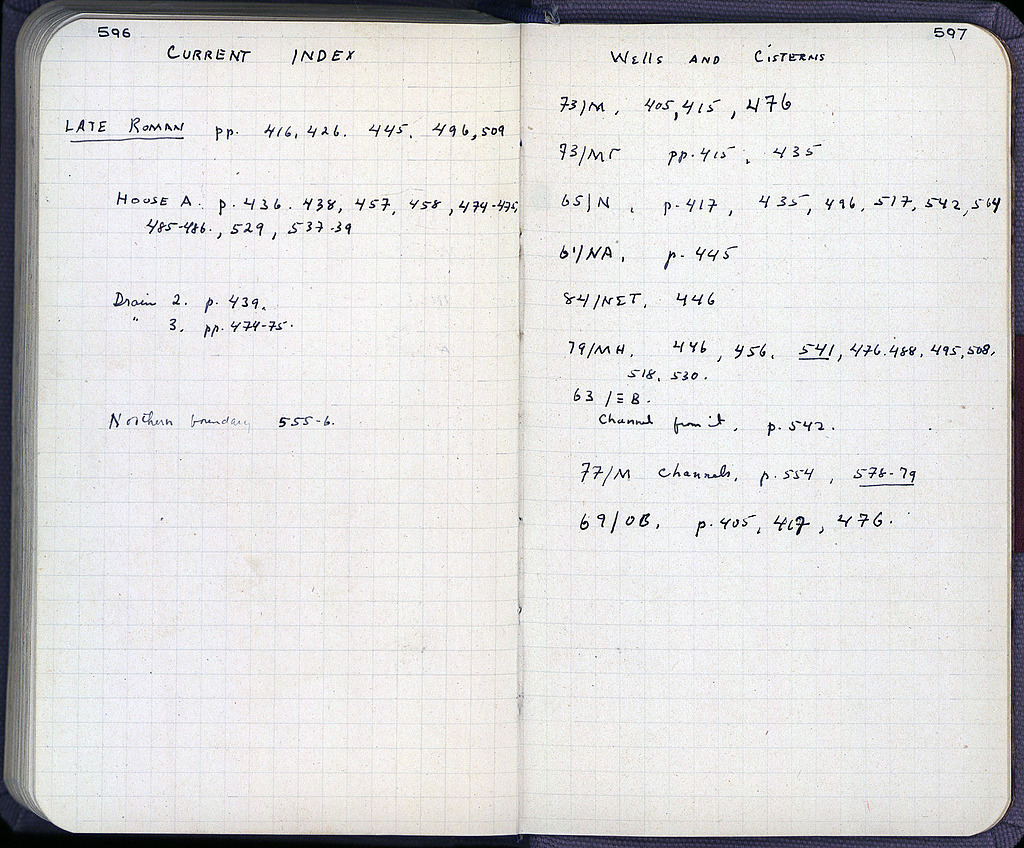 596
CURRENT INDEX
LATE ROMAN pp. 416, 426. 445. 496, 509
HOUSE A. p. 436. 438, 457, 458, 474-475,
485-486., 529, 537-39
Drain 2. p. 439.
" 3. pp. 474-75.
Northern boundary 555-6.
597
Wells AND CISTERNS
73/M. 405, 415, 476
73/MΓ pp. 415, 435
65/N, p. 417, 435, 496, 517, 542, 564
61/NA, p. 445
84/ΝΣΤ, 446
79/MH. 446, 456. 541, 476. 488, 495, 508,
518, 530.
63/ΞB.
Channel from it, p. 542.
77/M channels, p. 554, 578-79
69/OB, p. 405, 417, 476.